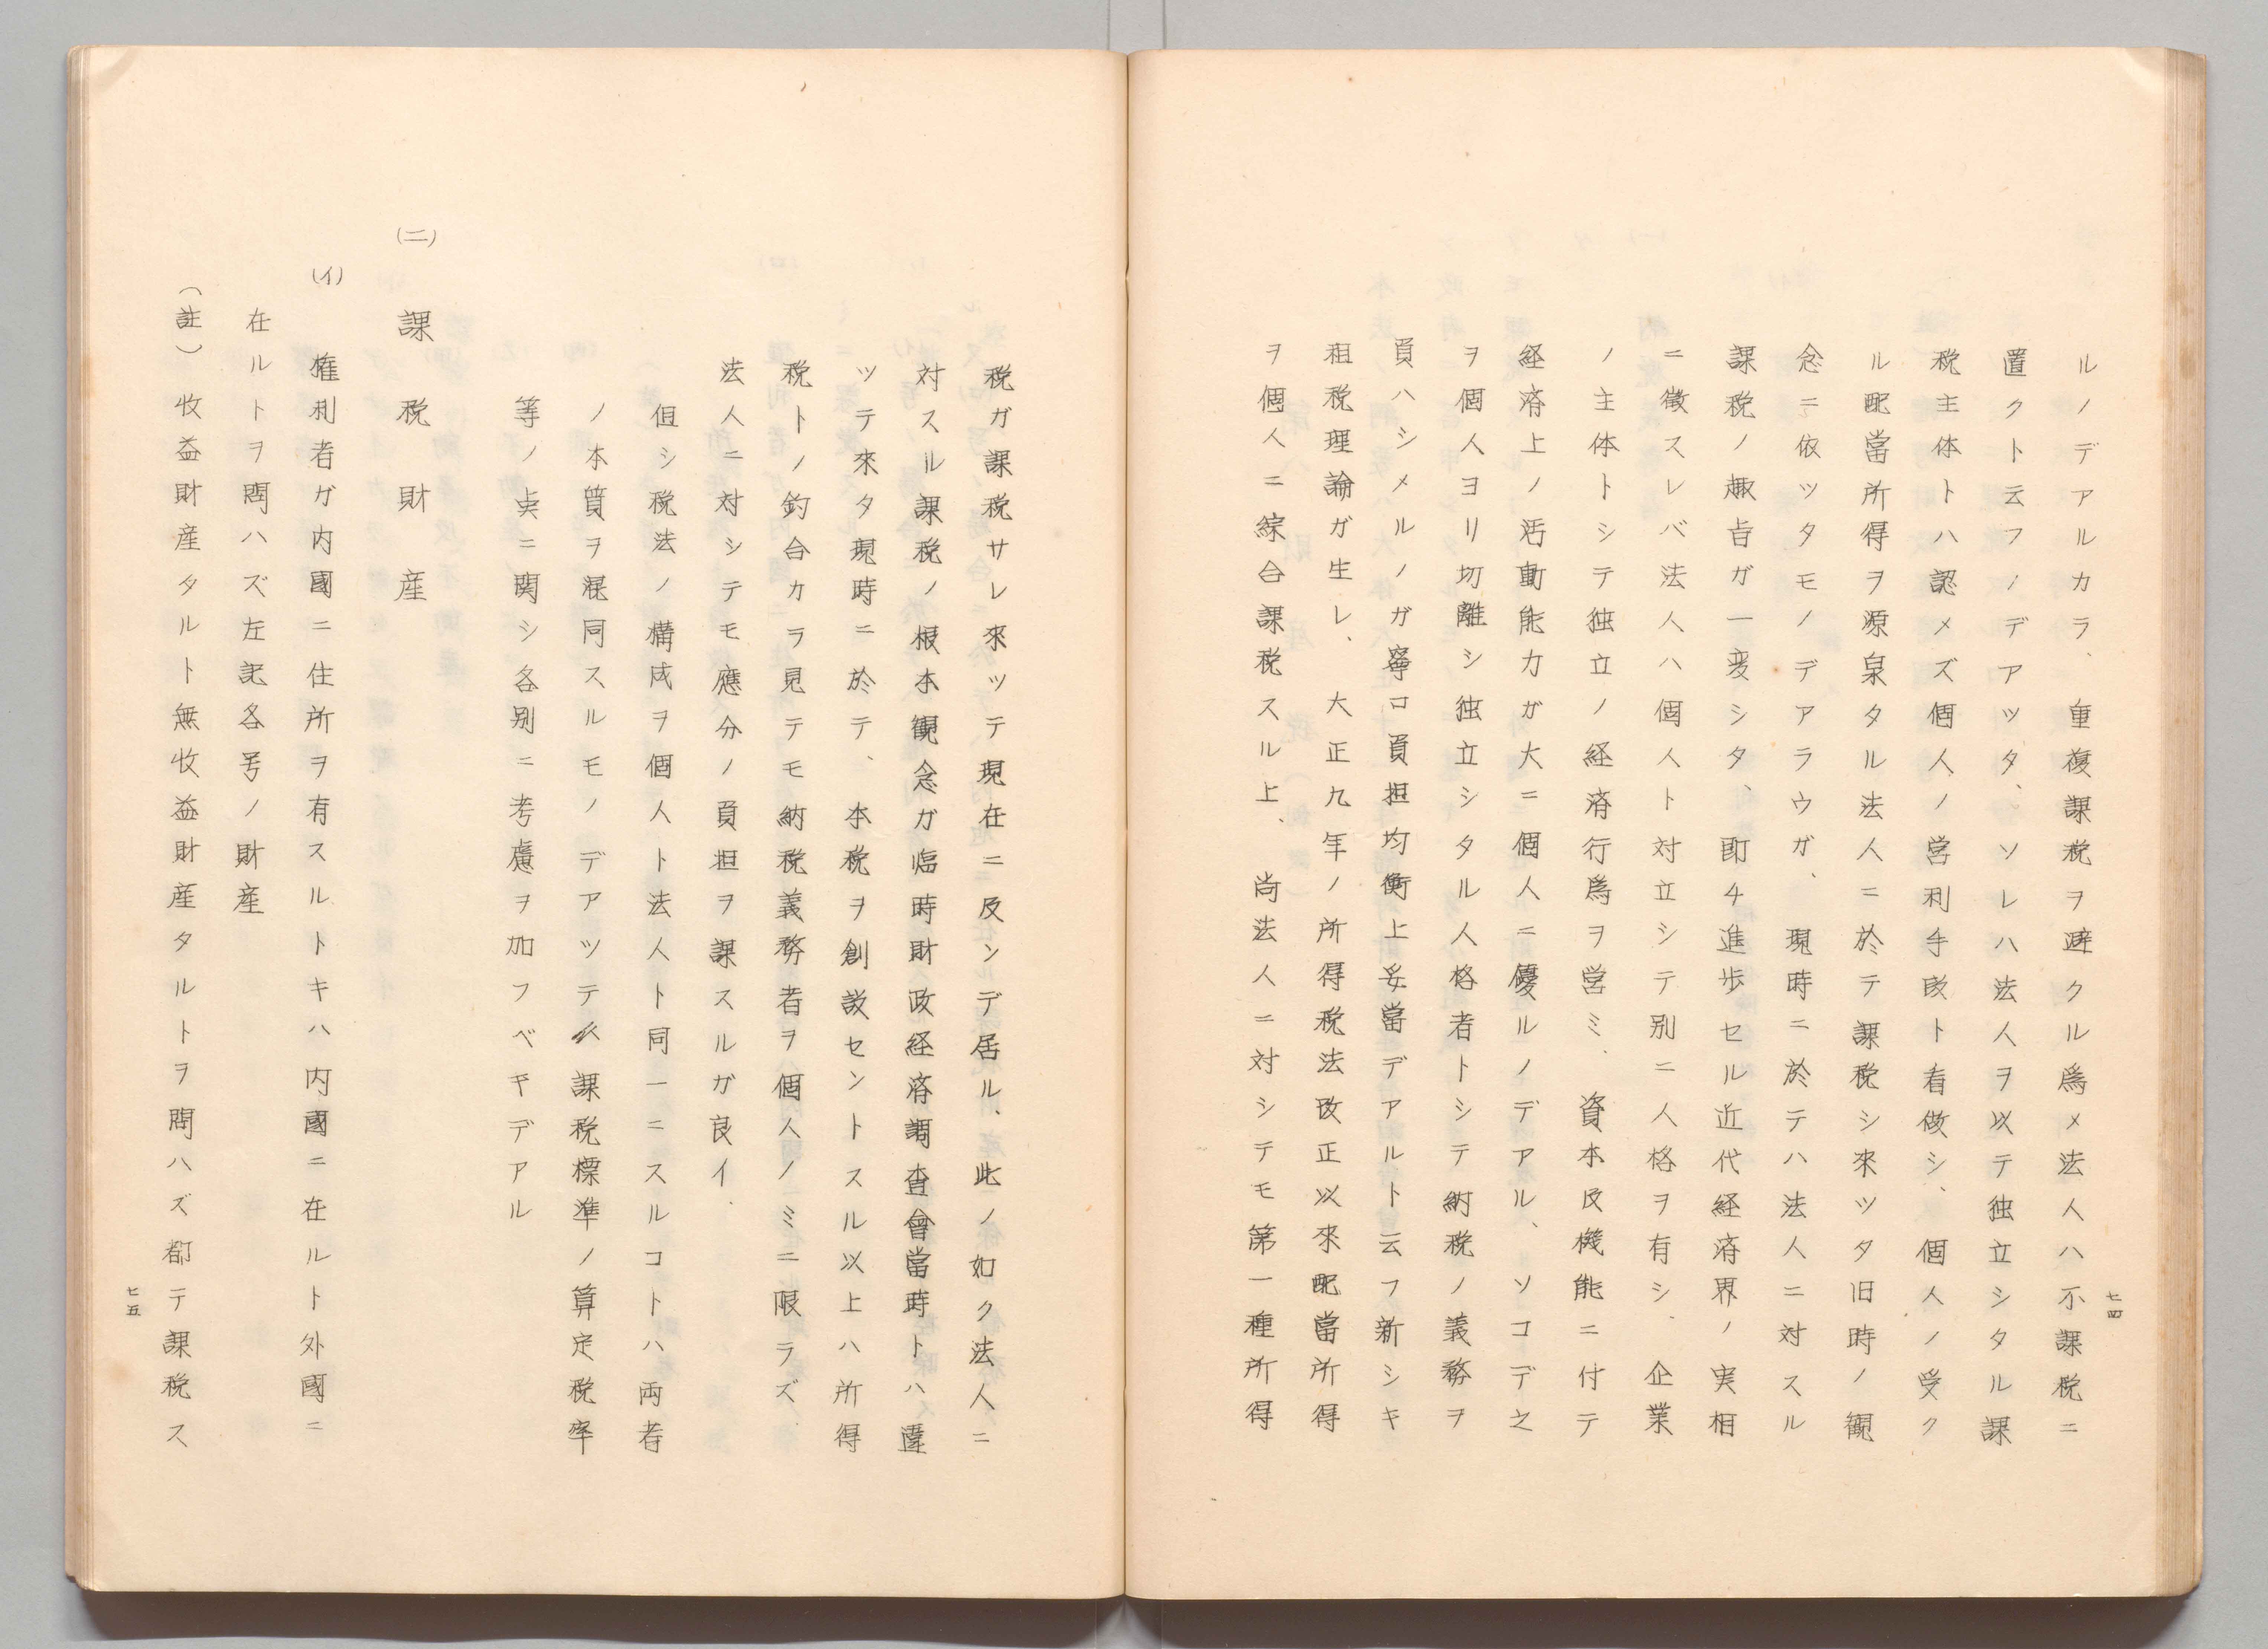 ルノデアルカラ、重複課税ヲ避クル爲メ法人ハ不課税ニ
置クト云フノデアツタ、ソレハ法人ヲ以テ独立シタル課
税主体トハ認メズ個人ノ営利手段ト看做シ、個人ノ受ク
ル配當所得ヲ源泉タル法人ニ於テ課税シ來ツタ旧時ノ観
念ニ依ツタモノデアラウガ、現時ニ於テハ法人ニ対スル
課税ノ趣旨ガ一変シタ、即チ進歩セル近代経済界ノ実相
ニ徴スレバ法人ハ個人ト対立シテ別ニ人格ヲ有シ、企業
ノ主体トシテ独立ノ経済行爲ヲ営ミ、資本及機能ニ付テ
経済上ノ活動能力ガ大ニ個人ニ優ルノデアル、ソコデ之
ヲ個人ヨリ切離シ独立シタル人格者トシテ納税ノ義務ヲ
負ハシメルノガ寧コ負担均衡上妥當デアルト云フ新シキ
租税理論ガ生レ、大正九年ノ所得税法改正以來配當所得
ヲ個人ニ綜合課税スル上、尚法人ニ対シテモ第一種所得
七四
税ガ課税サレ來ツテ現在ニ及ンデ居ル、此ノ如ク法人ニ
対スル課税ノ根本観念ガ臨時財政経済調査會當時トハ違
ツテ來タ現時ニ於テ、本税ヲ創設セントスル以上ハ所得
税トノ釣合カラ見テモ納税義務者ヲ個人ノミニ限ラズ、
法人ニ対シテモ應分ノ負担ヲ課スルガ良イ、
但シ税法ノ構成ヲ個人ト法人ト同一ニスルコトハ両者
ノ本質ヲ混同スルモノデアツテ課税標準ノ算定税率
等ノ点ニ関シ各別ニ考慮ヲ加フベキデアル
(二) 課税財産
(イ) 権利者ガ内國ニ住所ヲ有スルトキハ内國ニ在ルト外國ニ
在ルトヲ問ハズ左記各号ノ財産
(註) 收益財産タルト無收益財産タルトヲ問ハズ都テ課税ス
七五